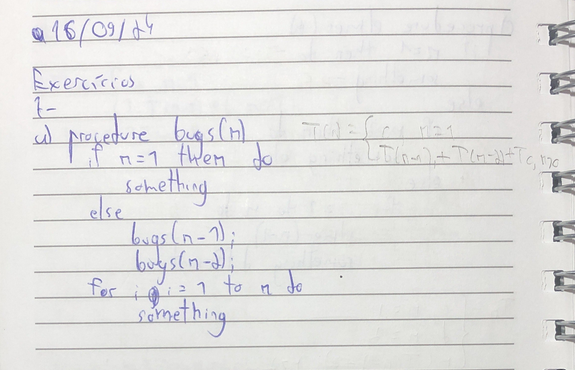 16/09/24
Exercícios
1-
a) procedure bugs(n)
if n=1 then do
something
else
bugs(n-1);
bugs(n-2);
for i:=1 to n do
something
T(n)={ c, n=1
T(n-1)+T(n-2)+